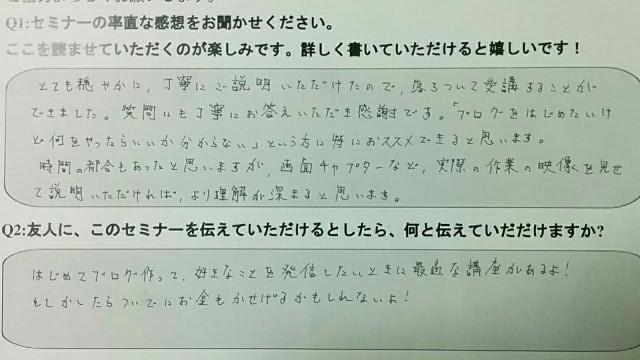 Q1:セミナーの率直な感想をお聞かせください。
ここを読ませていただくのが楽しみです。詳しく書いていただけると嬉しいです！
とても穏やかに、丁寧にご説明いただけたので、落ちついて受講することが
できました。質問にも丁寧にお答えいただき感謝です。「ブログをはじめたいけ
ど何をやったらいいか分からない」という方に特におススメできると思います。
時間の都合もあったと思いますが、画面キャプチャーなど、実際の作業の映像を見せ
て説明いただければ、より理解が深まると思います。
Q2:友人に、このセミナーを伝えていただけるとしたら、何と伝えていただけますか?
はじめてブログ作って、好きなことを発信したいときに最適な講座があるよ！
もしかしたらついでにお金もかせげるかもしれないよ！